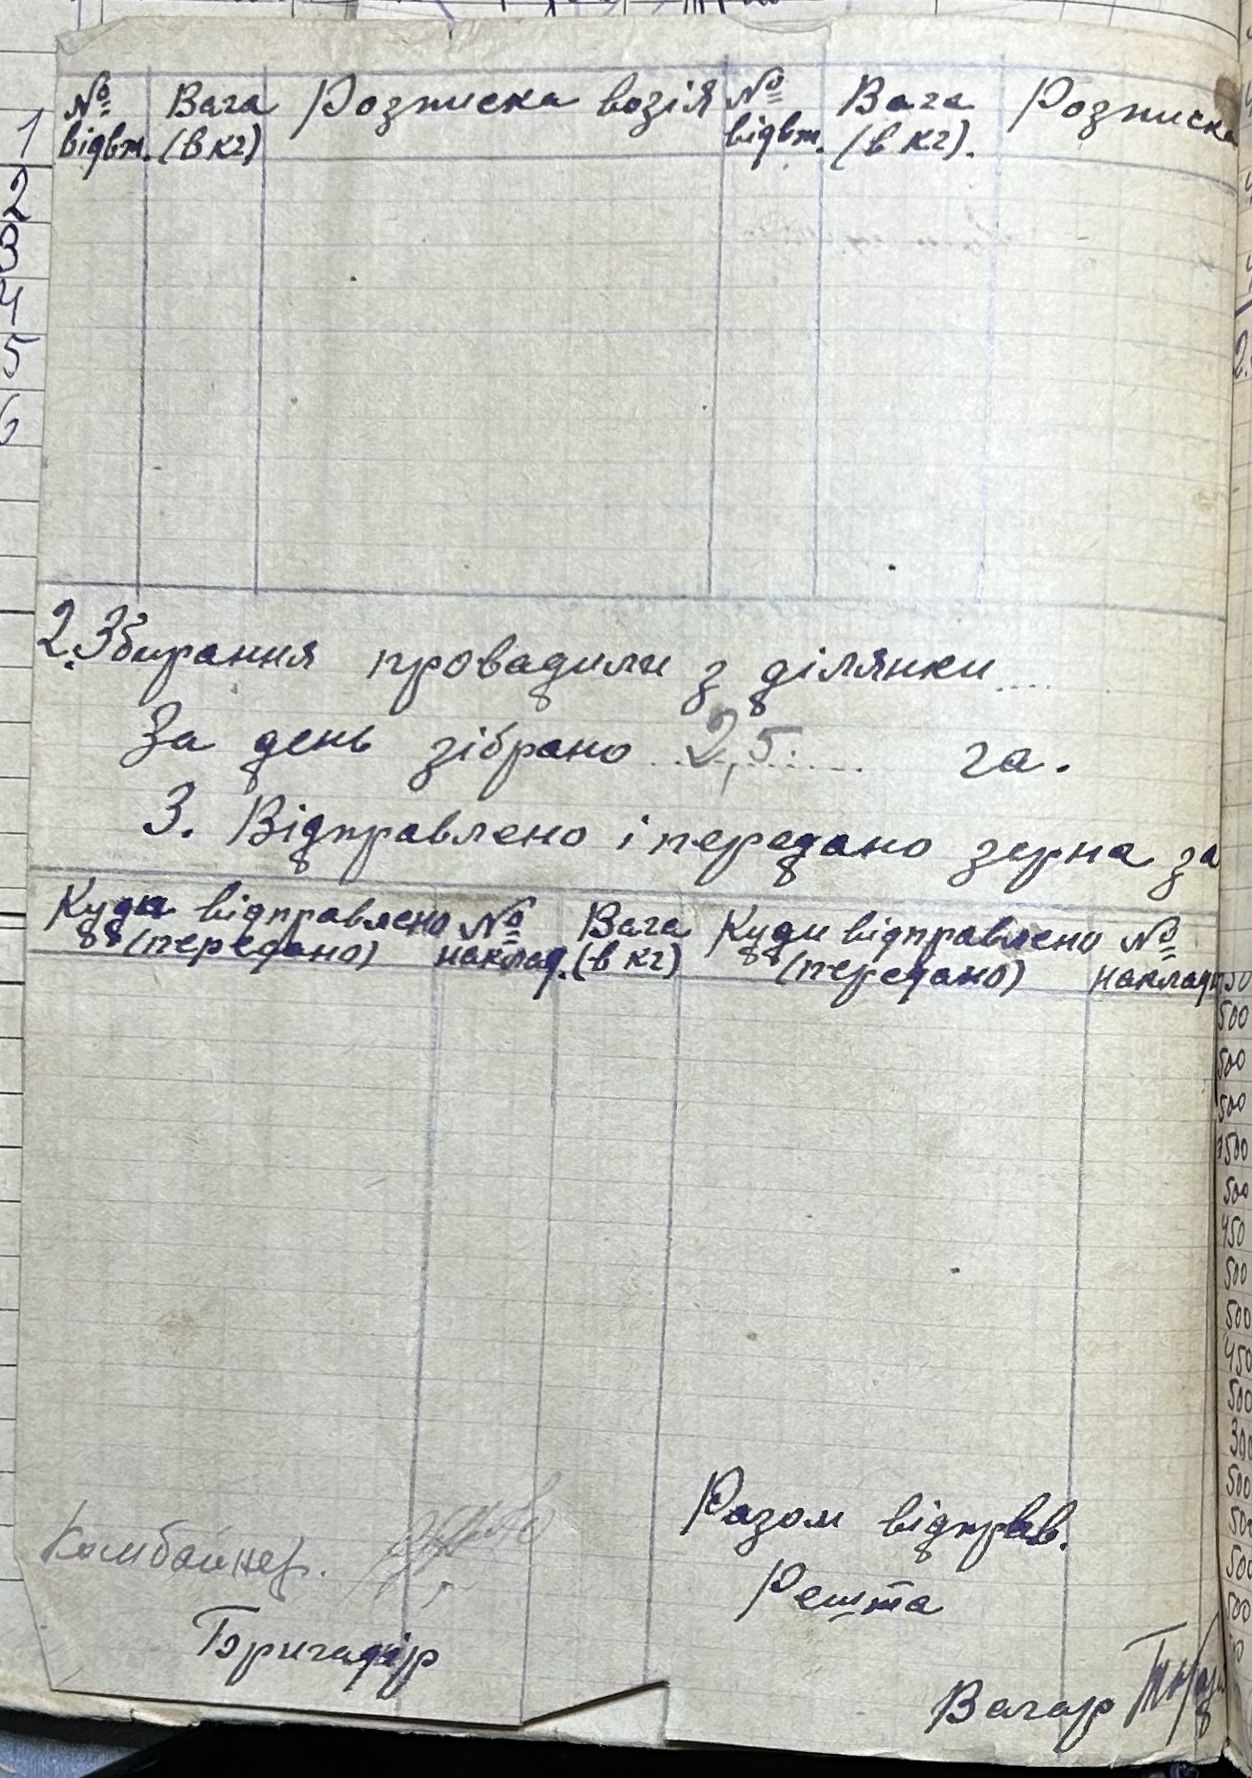 № Вага Розписка возія № Вага Розписка
відвт. (в кг) відвт. (в кг).
1
2
3
4
5
6
2. Збирання провадили з ділянки....
За день зібрано 2,5 га.
3. Відправлено і передано зерна за
Куди відправлено № Вага Куди відправлено №
(передано) наклад. (в кг) (передано) наклад
500
500
500
500
500
450
500
500
450
500
300
500
500
500
500
Разом відправ.
Комбайнер.
Решта
Бригадир
Вагар